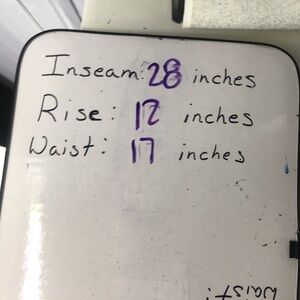 Inseam: 28 inches
Rise: 12 inches
Waist: 17 inches
Waist: